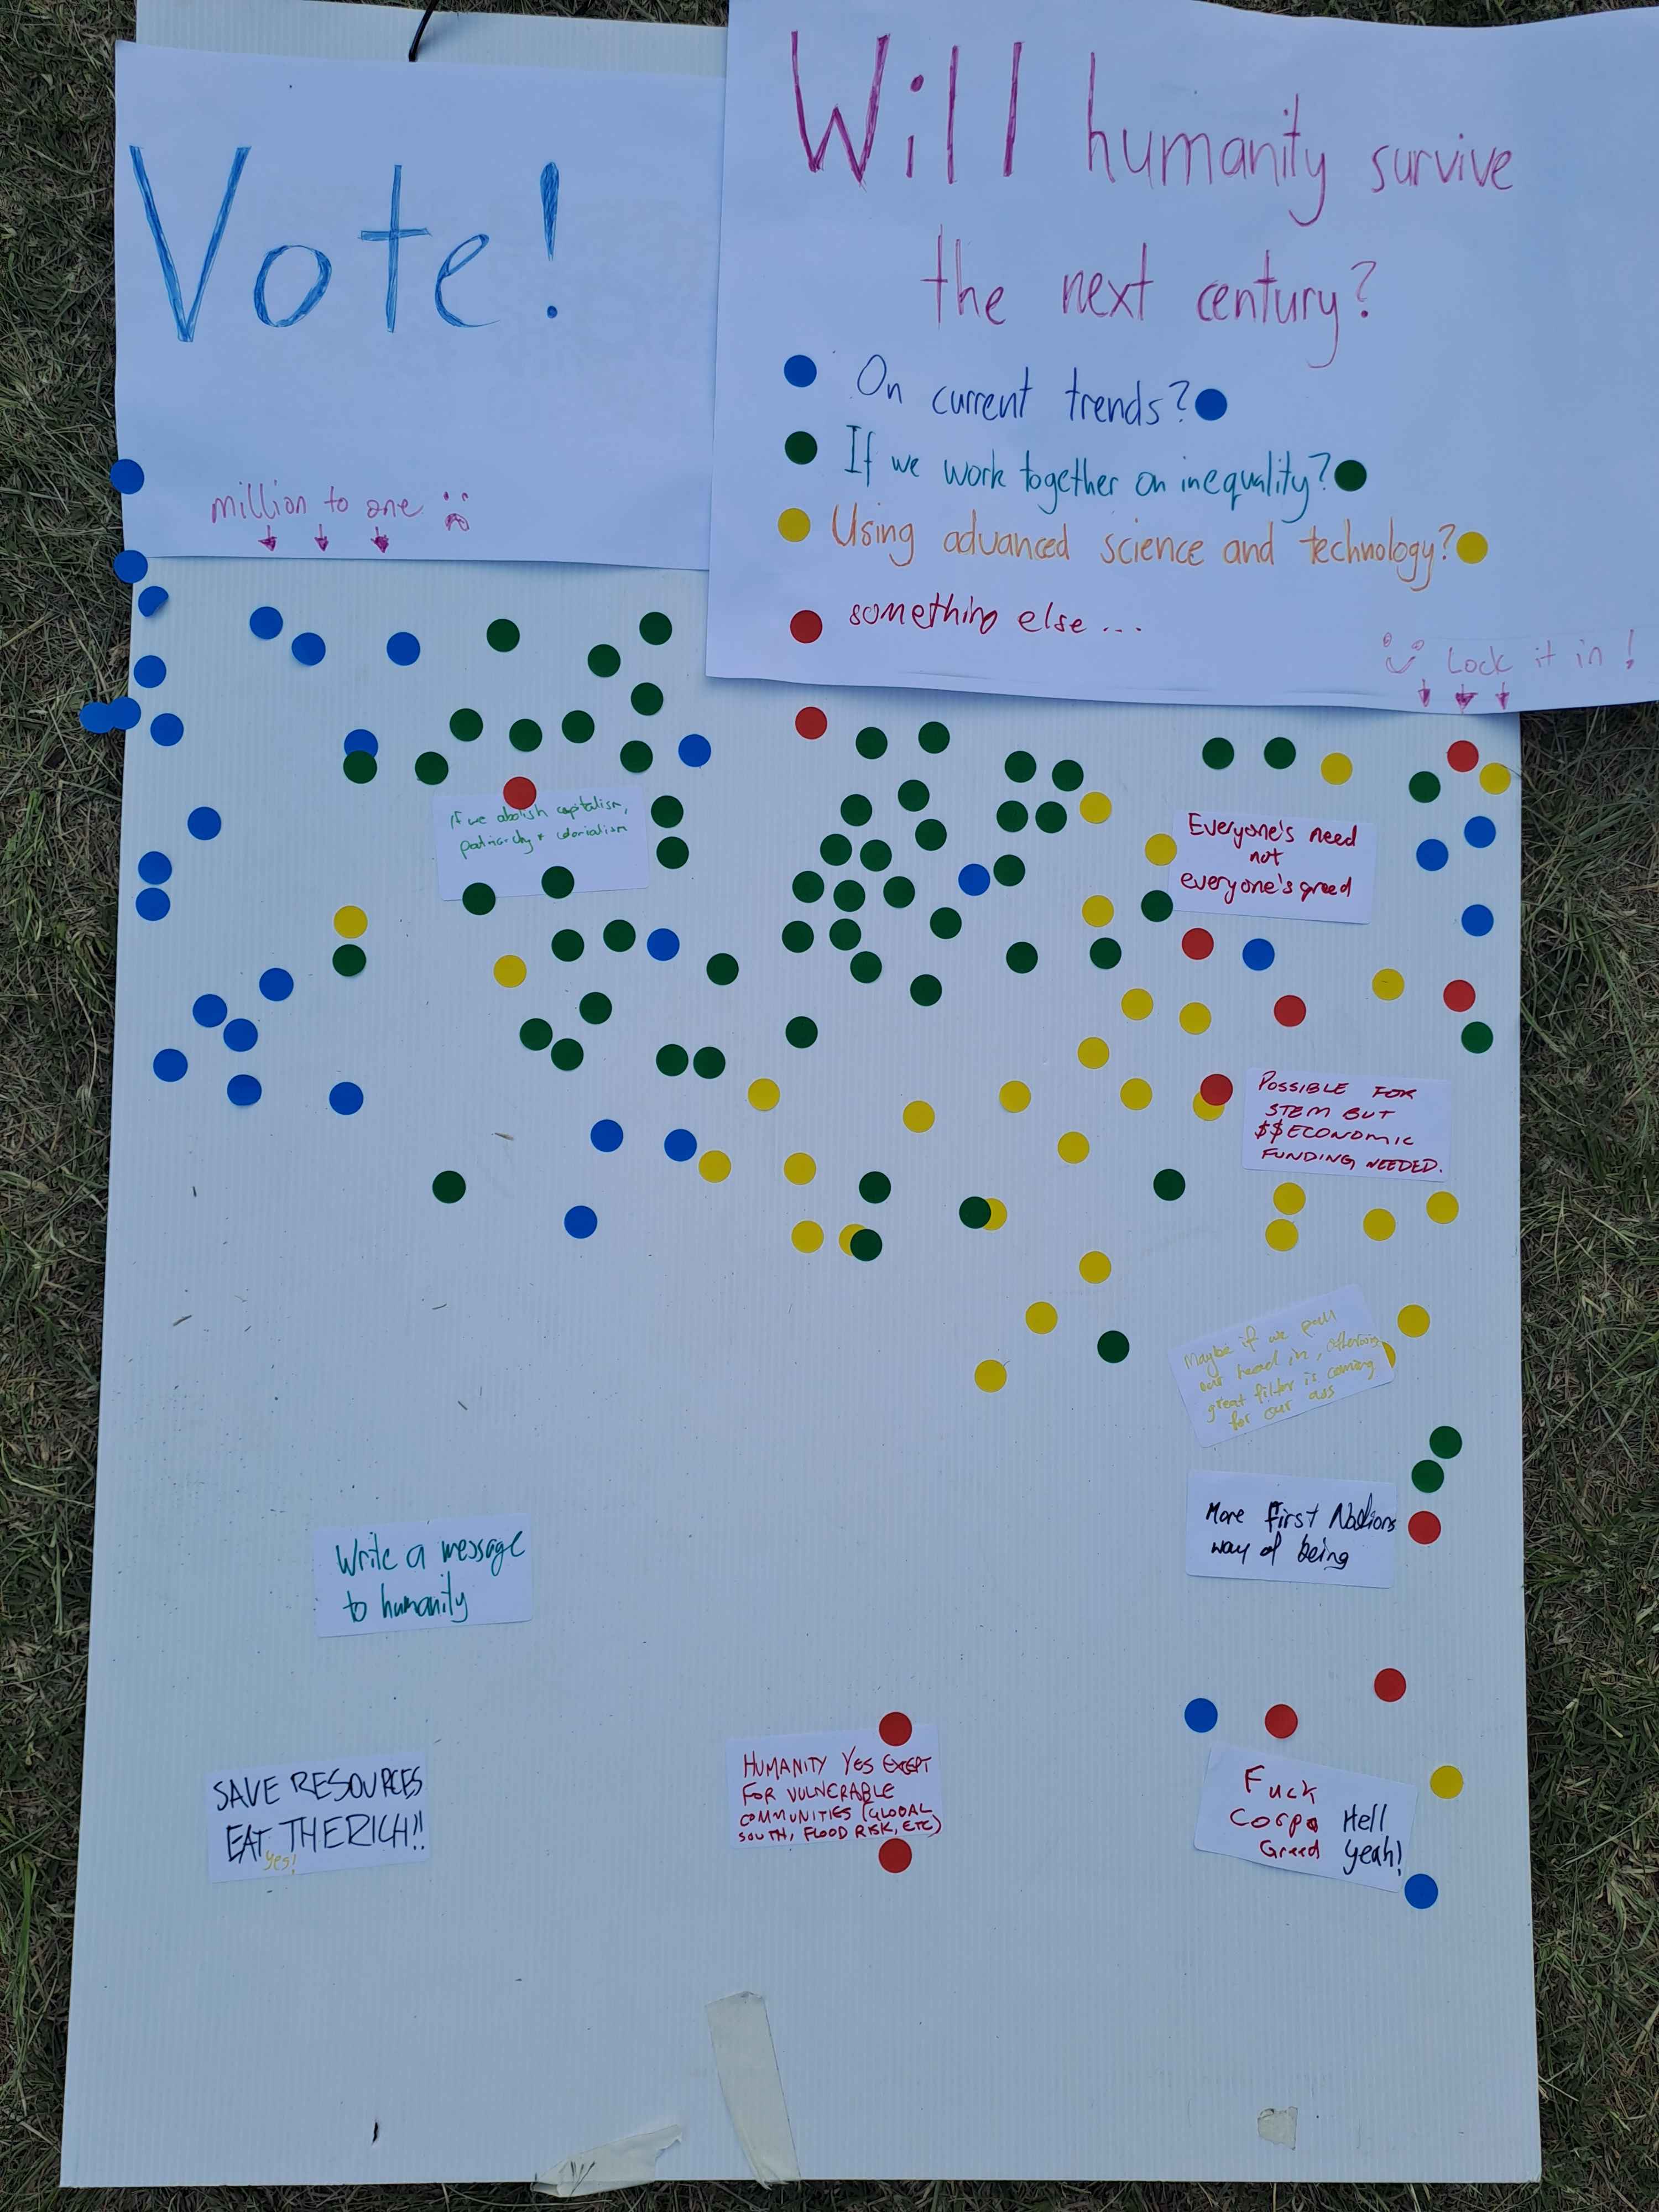 Vote!
million to one
Will humanity survive
the next century?
On current trends?
If we work together on inequality?
Using advanced science and technology?
something else ...
Lock it in!
If we abolish capitalism,
patriarchy + colonialism
Everyone's need
not
everyone's greed
POSSIBLE FOR
STEM BUT
$$ECONOMIC
FUNDING NEEDED.
Maybe if we pull
our head in, otherwise
great filter is coming
for our ass
More First Nations
way of being
Write a message
to humanity
SAVE RESOURCES
EAT THE RICH!!
yes!
HUMANITY YES EXCEPT
FOR VULNERABLE
COMMUNITIES (GLOBAL
SOUTH, FLOOD RISK, ETC)
Fuck
Corpo Hell
Greed yeah!